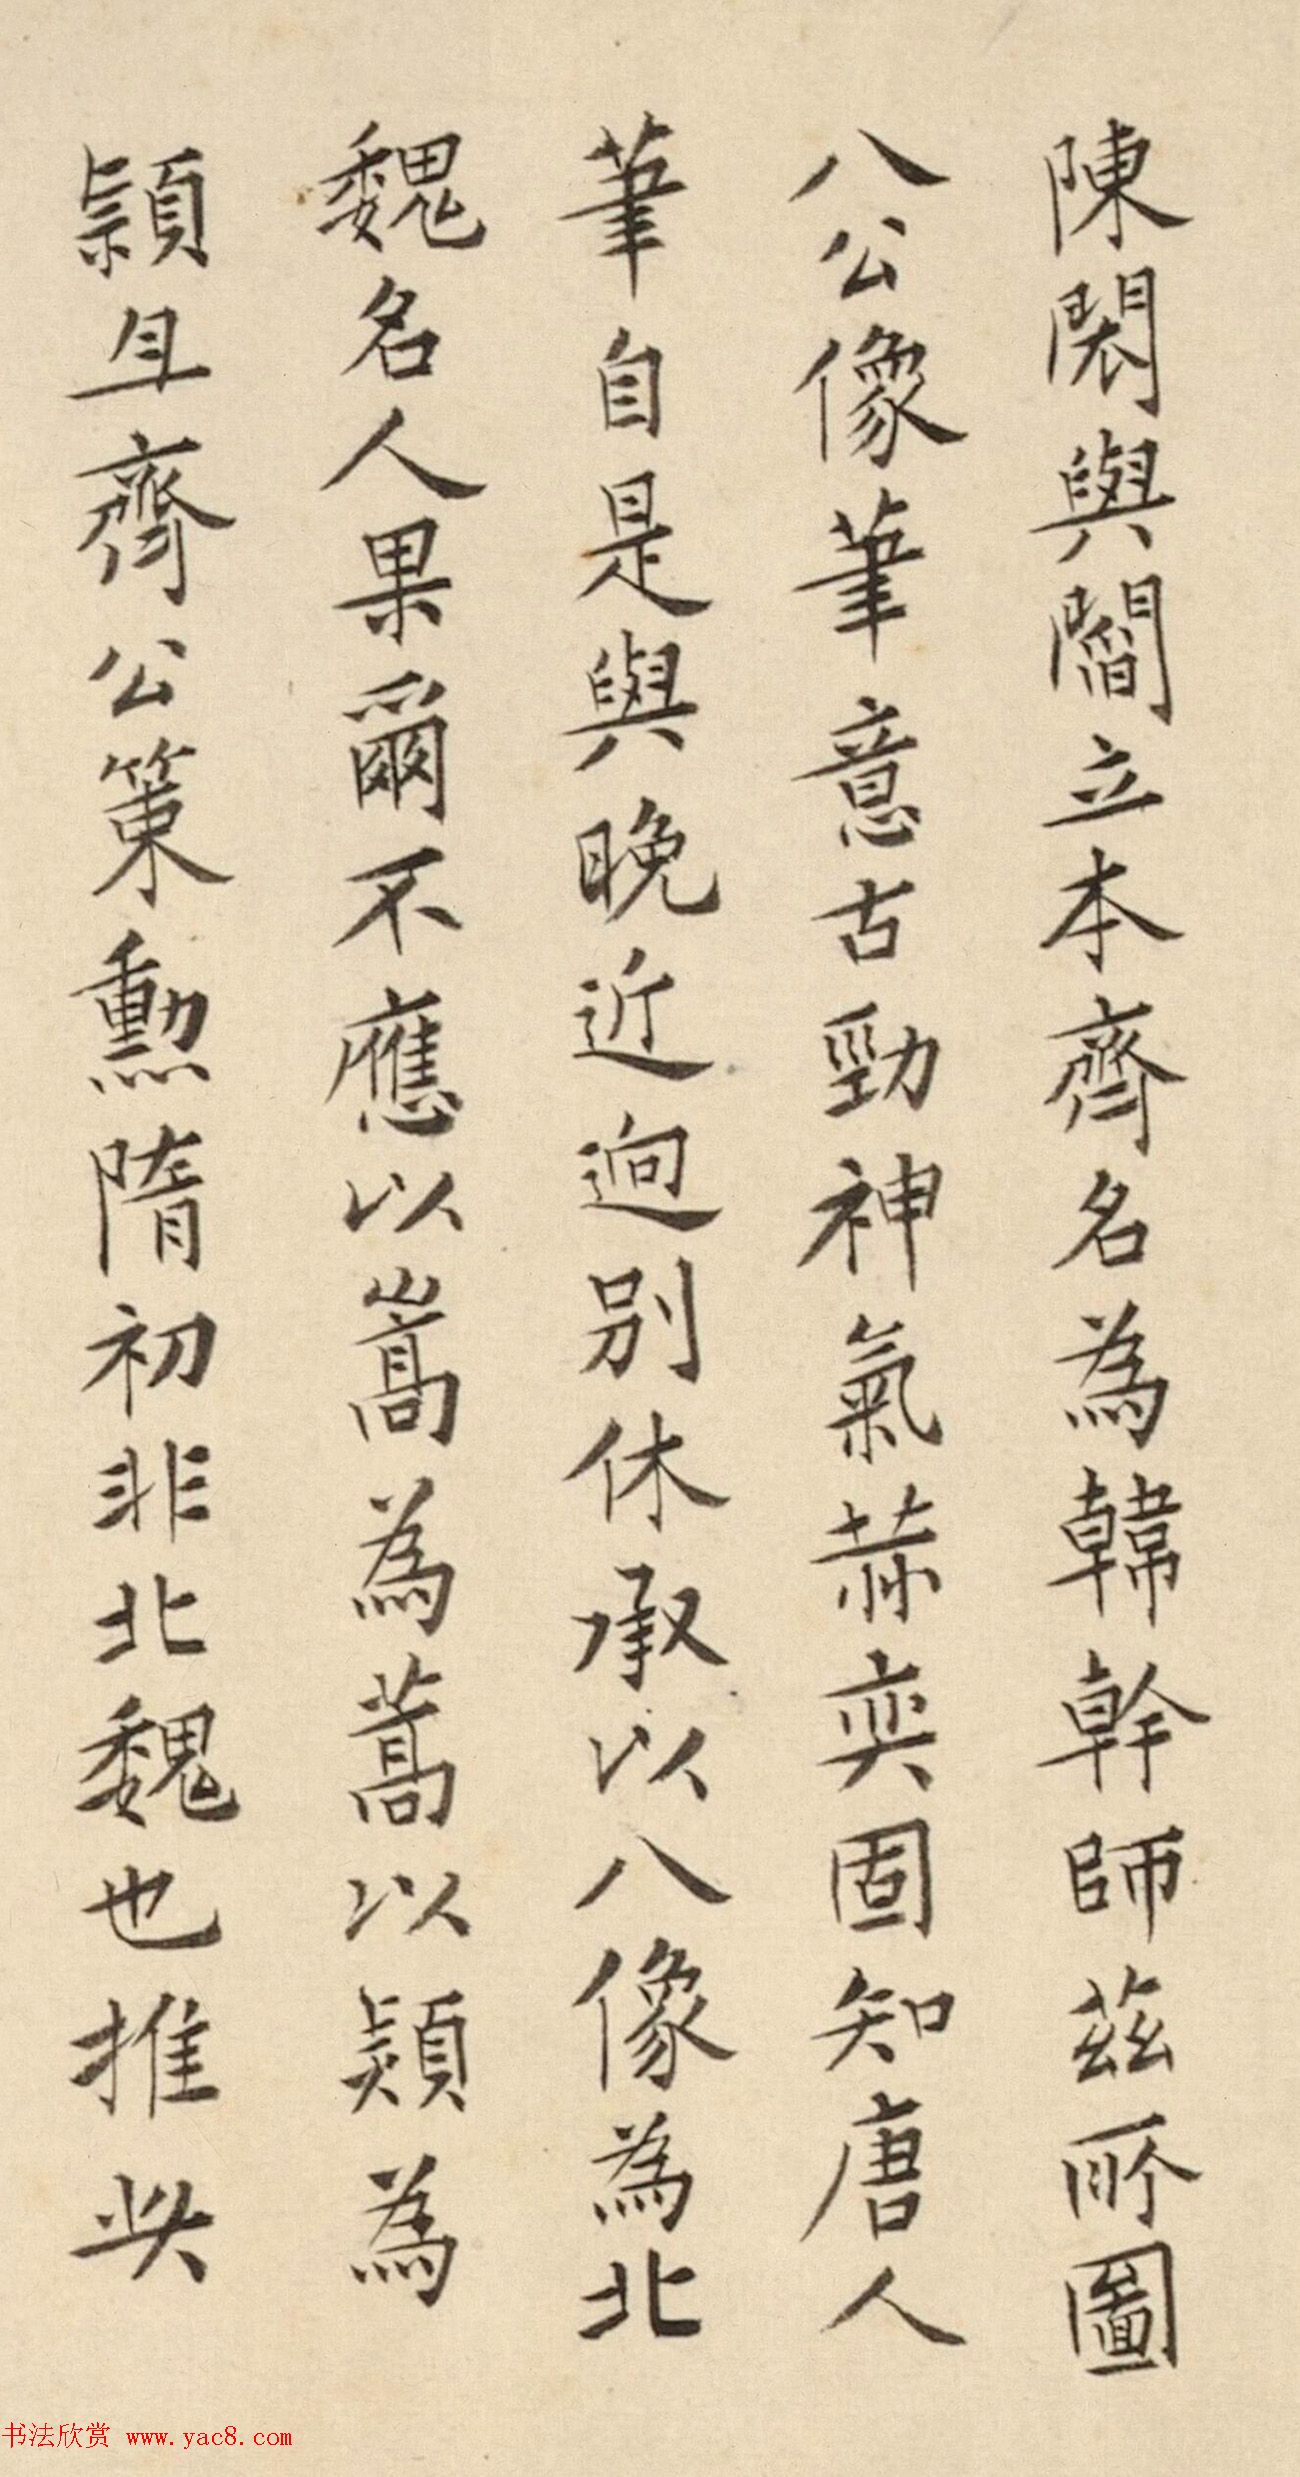 陳閎與閻立本齊名為韓幹師茲所圖
八公像筆意古勁神氣赫奕固知唐人
筆自是與晚近迥別休承以八像為北
魏名人果爾不應以嵩為蒿以熲為
頴且齊公策勳隋初非北魏也推此
书法欣赏 www.yac8.com